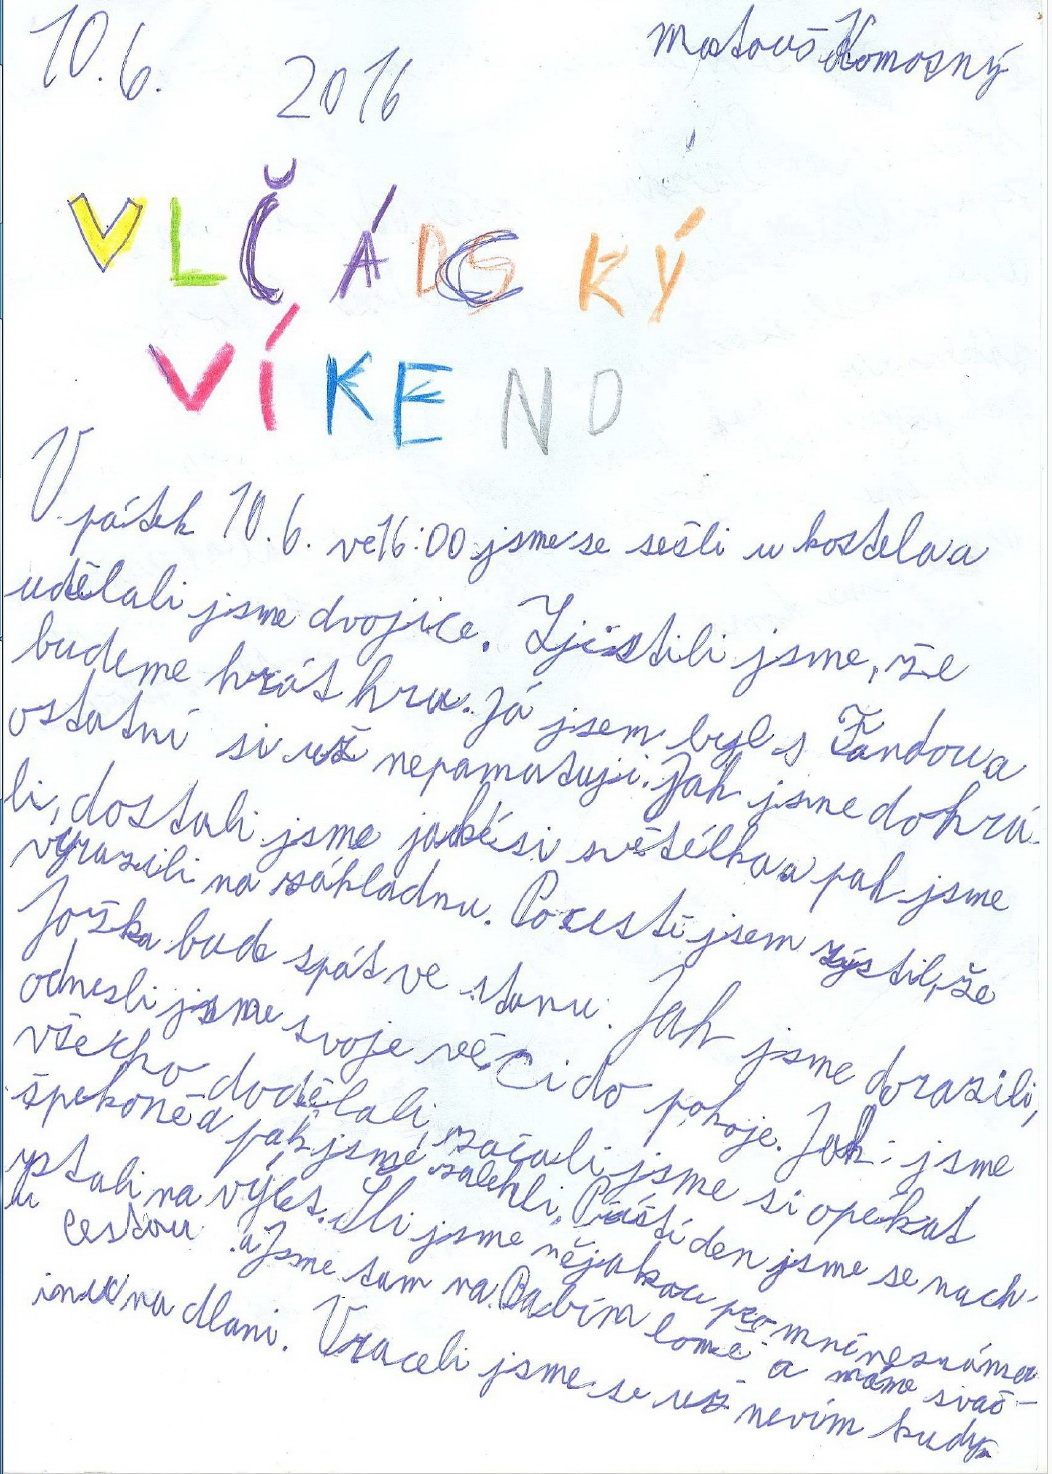 10.6. 2016
Matouš Komosný
VLČÁCSKÝ
VÍKEND
V pátek 10.6. ve 16:00 jsme se sešli u kostela a
udělali jsme dvojice. Zjistili jsme, že
budeme hrát hru. Já jsem byl s Fandou a
ostatní si už nepamatuji. Jak jsme dohrá-
li, dostali jsme jakési světélka a pak jsme
vyrazili na základnu. Po cestě jsem zjistil, že
Jožka bude spát ve stanu. Jak jsme dorazili,
odnesli jsme svoje věci do pokoje. Jak jsme
všecho dodělali, začali jsme si opékat
špekoně a pak jsme zalehli. Příští den jsme se nach-
ystali na výlet. Šli jsme nějakou pro mně neznámou
cestou. a Jsme tam na Babím lomě a máme svač-
inu na dlani. Vraceli jsme se už nevím kudy.